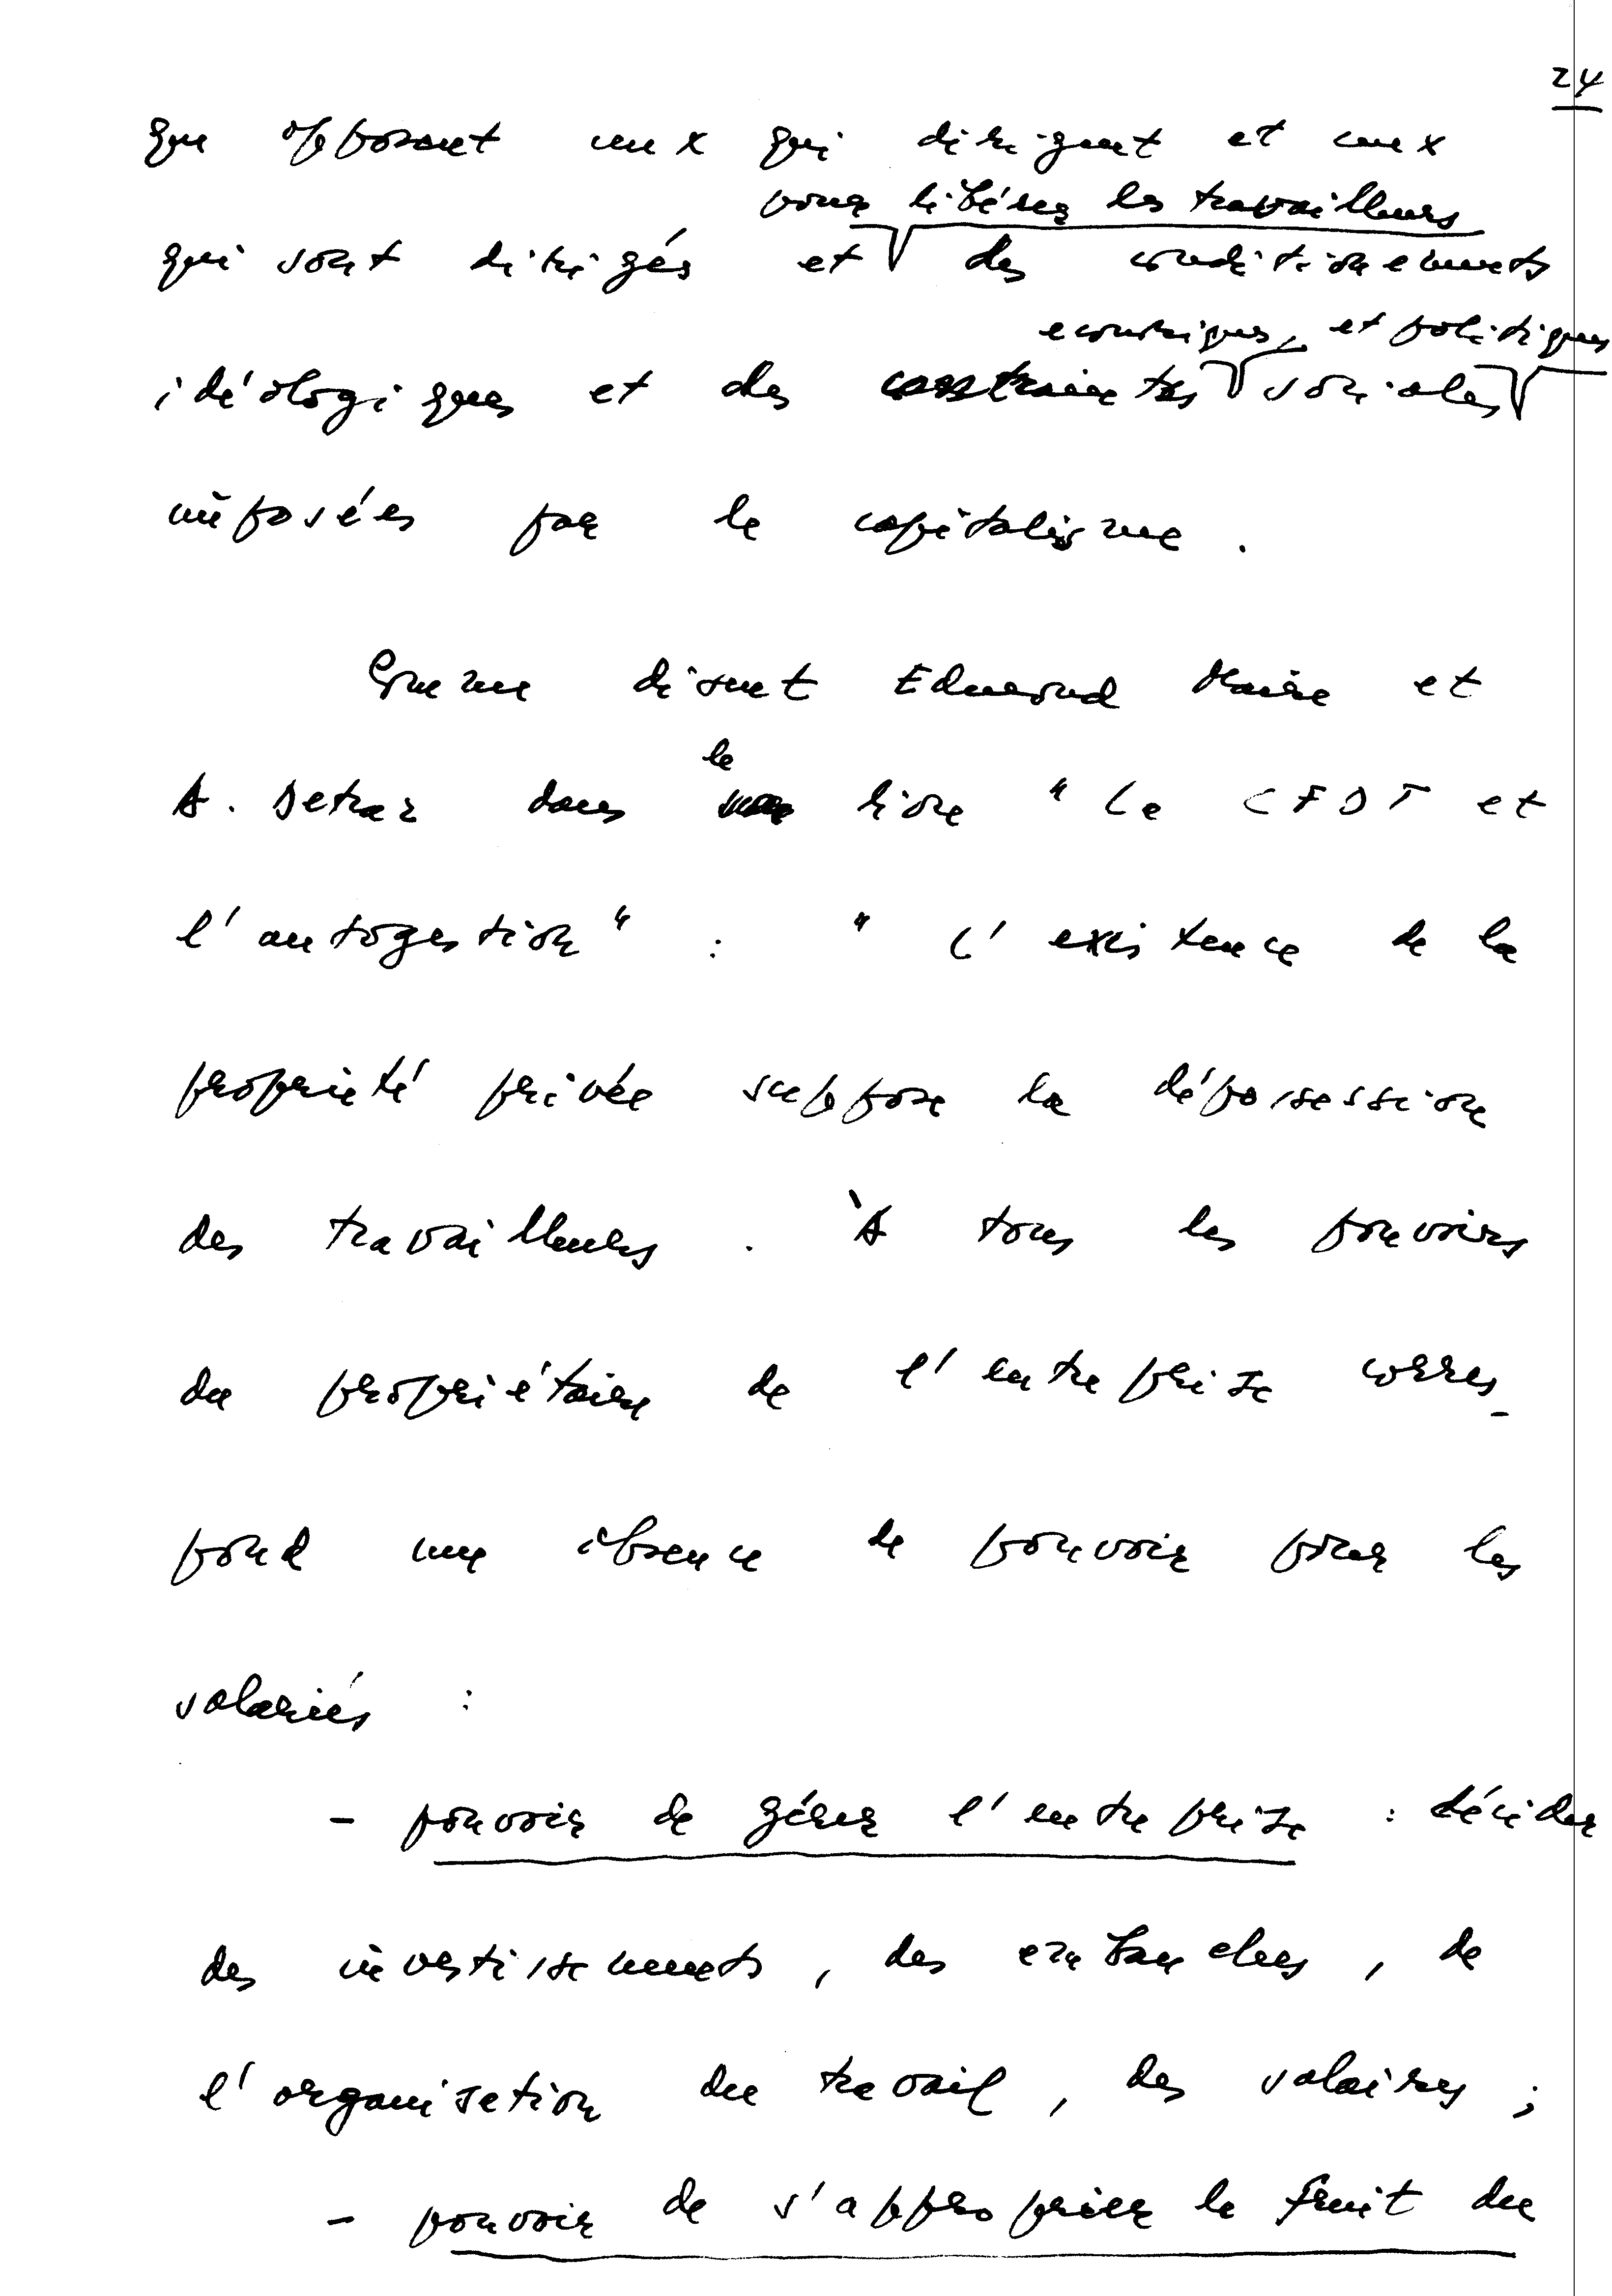 24
que opposent ceux qui dirigent et ceux
pour libérer les travailleurs
qui sont dirigés et des conditionements
economiques, et politiques
idéologiques et des contraintes sociales
imposées par le capitalisme.
Comme disent Edmond Maire et
le
A. Detraz dans livre "La CFDT et
l'autogestion" : "L'existence de la
propriété privée suppose la dépossession
des travailleurs. À tous les pouvoirs
du propriétaire de l'entreprise corres-
pond une absence de pouvoir pour les
salariés :
- pouvoir de gérer l'entreprise : décider
des investissements, des embauches, de
l'organisation du travail, des salaires ;
- pouvoir de s'approprier le fruit du